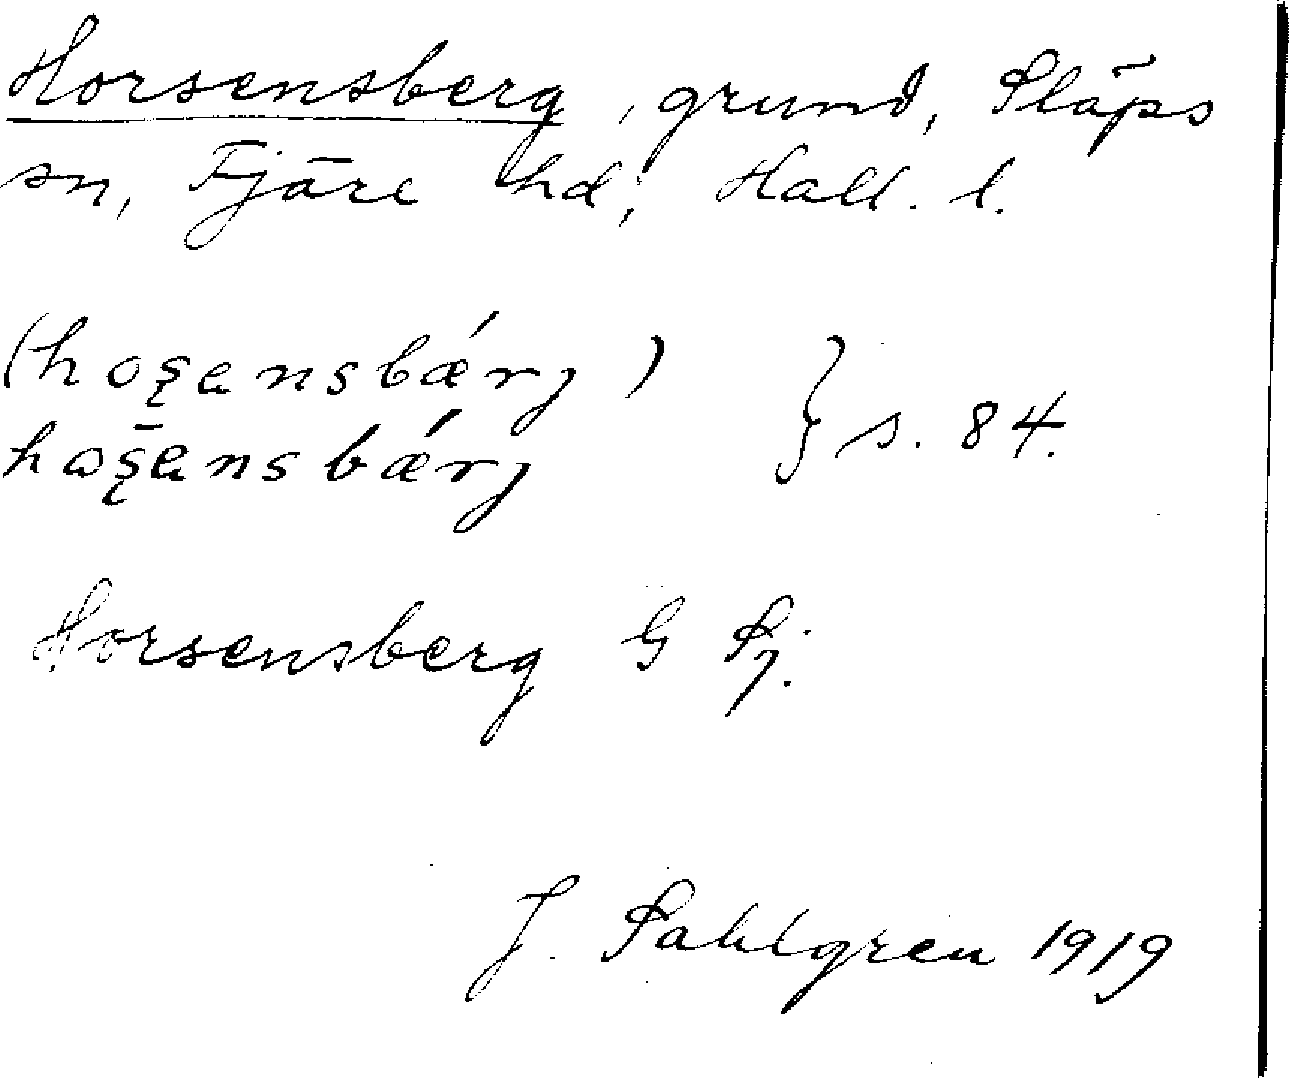 Horsensberg, grund, Släps
sn, Fjäre hd, Hall. l.
(hoşansbǽrj)
hoş̄ansbǽrj } s. 84.
Horsensberg G Sj.
J. Sahlgren 1919